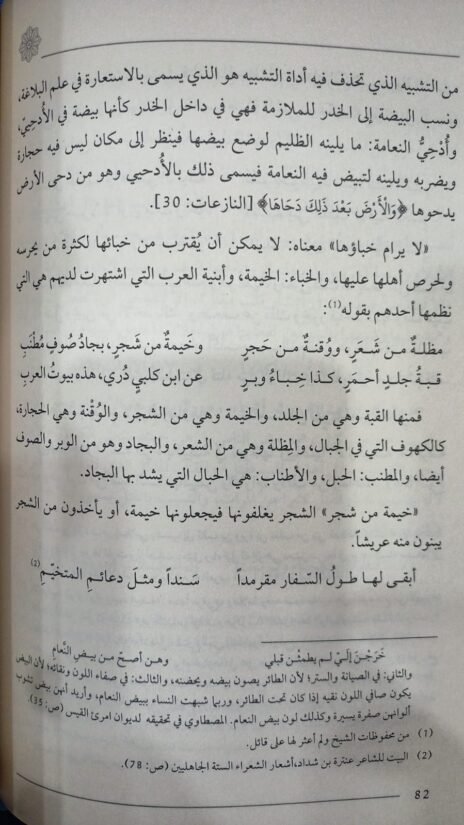 من التشبيه الذي تحذف فيه أداة التشبيه هو الذي يسمى بالاستعارة في علم البلاغة،
ونسب البيضة إلى الخدر للملازمة فهي في داخل الخدر كأنها بيضة في الأُدحِيّ،
وأُدْحِيُّ النعامة: ما يلينه الظليم لوضع بيضها فينظر إلى مكان ليس فيه حجارة
ويضربه ويلينه لتبيض فيه النعامة فيسمى ذلك بالأُدحيي وهو من دحى الأرض
يدحوها ﴿وَالْأَرْضَ بَعْدَ ذَلِكَ دَحَاهَا﴾ [النازعات: 30].
«لا يرام خباؤها» معناه: لا يمكن أن يُقترب من خبائها لكثرة من يحرسه
ولحرص أهلها عليها، والخباء: الخيمة، وأبنية العرب التي اشتهرت لديهم هي التي
نظمها أحدهم بقوله(1):
مظلةٌ مـن شعَـرٍ، ووُقنـةٌ مـن حَجرٍ وخَيمةٌ من شَجرٍ، بجادُ صُوفٍ مُطْنَبِ
قبـةُ جلـدٍ أحمـرٍ، كـذا خِبـاءُ وبـرٍ عن ابن كلبيٍ دُري، هذه بيوتُ العربِ
فمنها القبة وهي من الجلد، والخيمة وهي من الشجر، والوُقْنة وهي الحجارة،
كالكهوف التي في الجبال، والمِظلة وهي من الشعر، والبجاد وهو من الوبر والصوف
أيضا، والمطنب: الحبل، والأطناب: هي الحبال التي يشد بها البجاد.
«خيمة من شجر» الشجر يغلفونها فيجعلونها خيمة، أو يأخذون من الشجر
يبنون منه عريشاً.
أبقـى لهـا طـولُ السّـفار مقرمداً سَـنداً ومثـلَ دعائـمِ المتخيّـمِ(2)
خَرَجْـنَ إلـيّ لـم يطمثْـن قبلي وهـن أصـحّ مـن بيـضِ النَّعامِ
والثاني: في الصيانة والستر؛ لأن الطائر يصون بيضه ويحضنه، والثالث: في صفاء اللون ونقائه؛ لأن البيض
يكون صافي اللون نقيه إذا كان تحت الطائر، وربما شبهت النساء ببيض النعام، وأريد أنهن بيض تشرب
ألوانهن صفرة يسيرة وكذلك لون بيض النعام. المصطاوي في تحقيقه لديوان امرئ القيس (ص: 35).
(1) من محفوظات الشيخ ولم أعثر لها على قائل.
(2) البيت للشاعر عنترة بن شداد، أشعار الشعراء الستة الجاهليين (ص: 78).
82